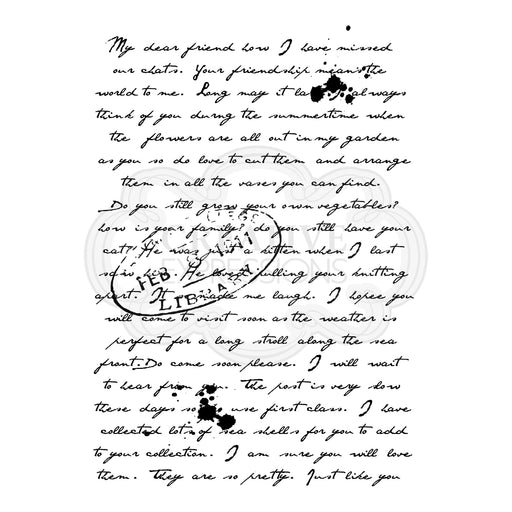 My dear friend how I have missed
our chats. Your friendship means the
world to me. Long may it las I always
think of you durng the summertime when
the flowers are all out in my garden
as you so do love to cut them and arrange
them in all the vases you can find.
Do you still grow your own vegetables?
how is your family? do you still have your
cat? He was just a kitten when I last
saw him. He loved pulling your knitting
apart. It made me laugh. I hopee you
will come to visit soon as the weather is
perfect for a long stroll along the sea
front. Do come soon please. I will wait
to hear from you. The post is very slow
these days so use first class. I have
collected lots of sea shells for you to add
to your collection. I am sure you will love
them. They are so pretty. Just like you
FEB
1411
LIBRARY
EXPRESSIONS